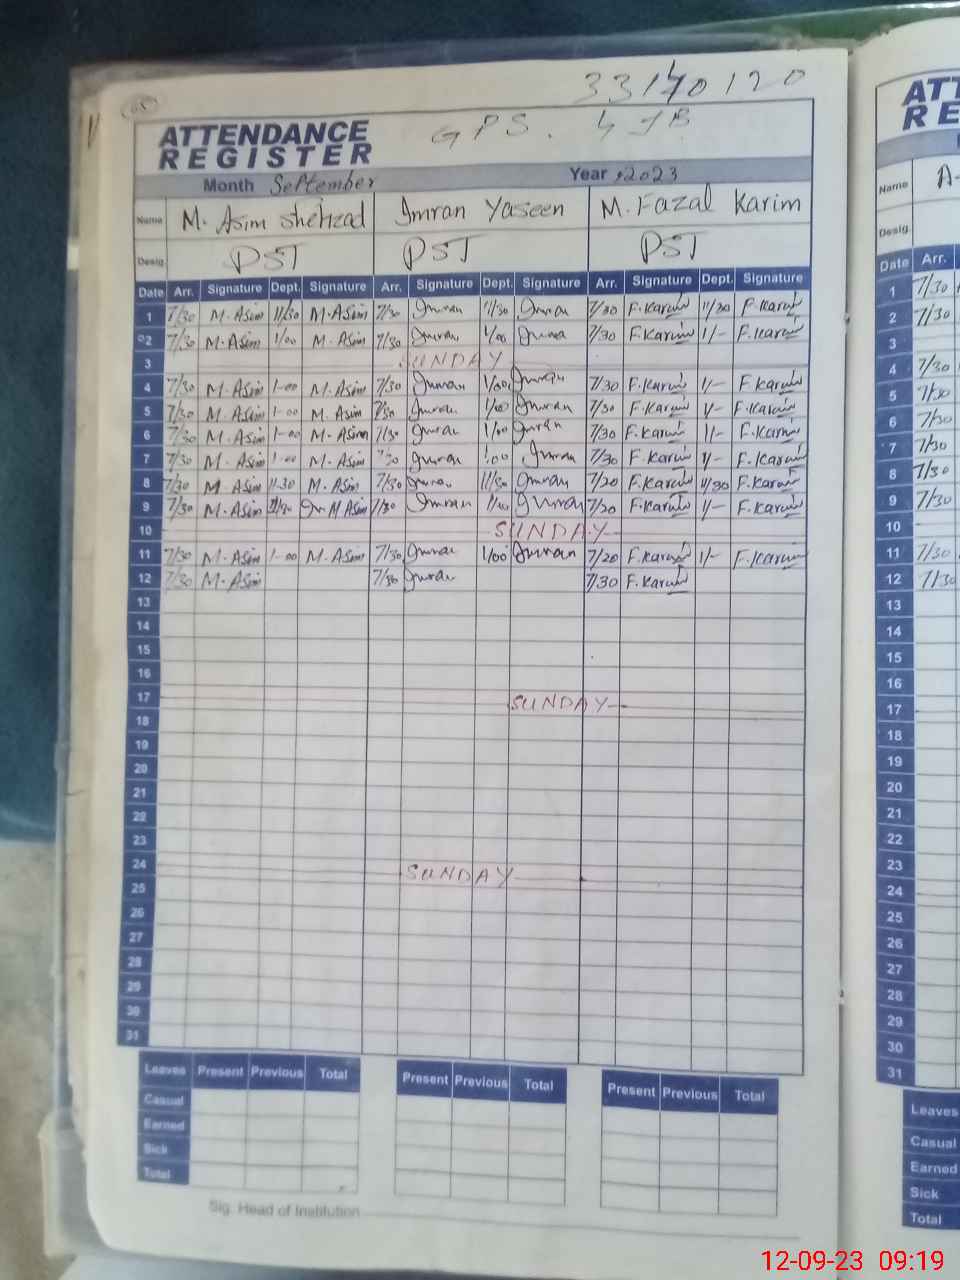 33140120
ATTENDANCE
REGISTER
GPS. 4 JB
Month September Year 2023
Name M. Asim Shehzad Imran Yaseen M. Fazal Karim
Desig. PST PST PST
Date Arr. Signature Dept. Signature Arr. Signature Dept. Signature Arr. Signature Dept. Signature
1 7/30 M. Asim 11/30 M. Asim 7/30 Imran 11/30 Imran 7/30 F. Karim 11/30 F. Karim
2 7/30 M. Asim 1/00 M. Asim 7/30 Imran 1/00 Imran 7/30 F. Karim 1/- F. Karim
3 SUNDAY
4 7/30 M. Asim 1-00 M. Asim 7/30 Imran 1/00 Imran 7/30 F. Karim 1/- F. Karim
5 7/30 M. Asim 1-00 M. Asim 7/30 Imran 1/00 Imran 7/30 F. Karim 1/- F. Karim
6 7/30 M. Asim 1-00 M. Asim 7/30 Imran 1/00 Imran 7/30 F. Karim 1/- F. Karim
7 7/30 M. Asim 1-00 M. Asim 7/30 Imran 1:00 Imran 7/30 F. Karim 1/- F. Karim
8 7/30 M. Asim 11-30 M. Asim 7/30 Imran 11/30 Imran 7/20 F. Karim 11/30 F. Karim
9 7/30 M. Asim M. Asim 7/30 Imran Imran 7/30 F. Karim 1/- F. Karim
10 SUNDAY
11 7/30 M. Asim 1-00 M. Asim 7/30 Imran 1/00 Imran 7/20 F. Karim 1/- F. Karim
12 7/30 M. Asim 7/30 Imran 7/30 F. Karim
13
14
15
16
17 SUNDAY
18
19
20
21
22
23
24 SUNDAY
25
26
27
28
29
30
31
Leaves Present Previous Total Present Previous Total Present Previous Total
Casual
Earned
Sick
Total
Sig. Head of Institution
ATT
RE
Name A-
Desig.
Date Arr.
1 7/30
2 7/30
3
4 7/30
5 7/30
6 7/30
7 7/30
8 7/30
9 7/30
10
11 7/30
12 7/30
13
14
15
16
17
18
19
20
21
22
23
24
25
26
27
28
29
30
31
Leaves
Casual
Earned
Sick
Total
12-09-23 09:19